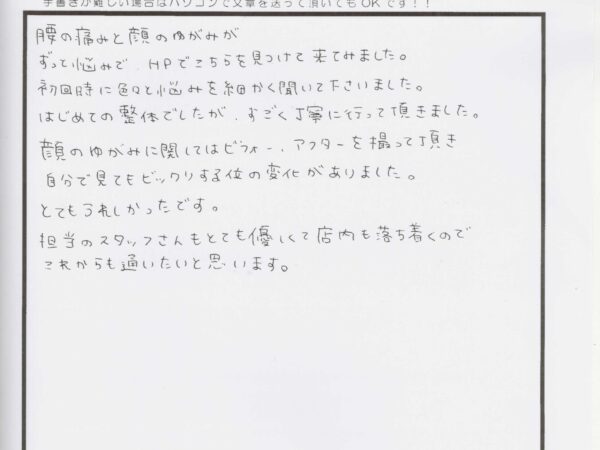 手書きが難しい場合はパソコンで文章を送って頂いてもOKです！！
腰の痛みと顔のゆがみが
ずっと悩みで、HPでこちらを見つけて来てみました。
初回時に色々と悩みを細かく聞いて下さいました。
はじめての整体でしたが、すごく丁寧に行って頂きました。
顔のゆがみに関してはビフォー、アフターを撮って頂き
自分で見てもビックリする位の変化がありました。
とてもうれしかったです。
担当のスタッフさんもとても優しくて店内も落ち着くので
これからも通いたいと思います。